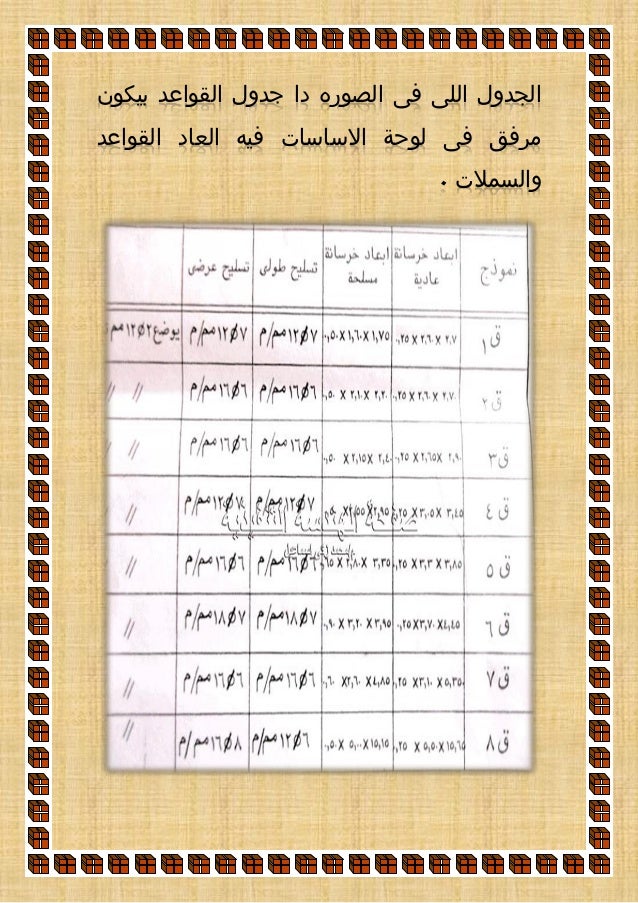 الجدول اللى فى الصوره دا جدول القواعد بيكون
مرفق فى لوحة الاساسات فيه العاد القواعد
والسملات .
نموذج ابعاد خرسانة عادية ابعاد خرسانة مسلحة تسليح طولى تسليح عرضى
ق١ ٢,٧ X ٢,٦٠ X ٠,٢٥ ١,٧٥ X ١,٦٠ X ٠,٥٠ ٧ Ø ١٢ مم/م ٧ Ø ١٢ مم/م يوضع ٢ Ø ١٢ مم
ق٢ ٢,٧٠ X ٢,٦٠ X ٠,٢٥ ٢,٢٠ X ٢,١٠ X ٠,٥٠ ٦ Ø ١٦ مم/م ٦ Ø ١٦ مم/م // //
ق٣ ٢,٩٠ X ٢,٦٥ X ٠,٢٥ ٢,٤٠ X ٢,١٥ X ٠,٥٠ ٦ Ø ١٦ مم/م ٦ Ø ١٦ مم/م // //
ق٤ ٣,٤٥ X ٣,٠٥ X ٠,٢٥ ٢,٩٥ X ٢,٥٥ X ٧ Ø ١٢ مم/م ٧ Ø ١٢ مم/م //
ق٥ ٣,٨٥ X ٣,٣ X ٠,٢٥ ٣,٣٥ X ٢,٨٠ X ٠,٦٥ ٦ Ø ١٦ مم/م ٦ Ø ١٦ مم/م //
ق٦ ٤,٤٥ X ٣,٧٠ X ٠,٢٥ ٣,٩٥ X ٣,٢٠ X ٠,٩٠ ٧ Ø ١٨ مم/م ٧ Ø ١٨ مم/م //
ق٧ ٥,٣٥ X ٣,١٠ X ٠,٢٥ ٤,٨٥ X ٢,٦٠ X ٠,٦٠ ٦ Ø ١٦ مم/م ٦ Ø ١٦ مم/م //
ق٨ ١٥,٦٥ X ٥,٥٠ X ٠,٢٥ ١٥,١٥ X ٥,٠٠ X ٠,٥٠ ٦ Ø ١٢ مم/م ٨ Ø ١٦ مم/م //